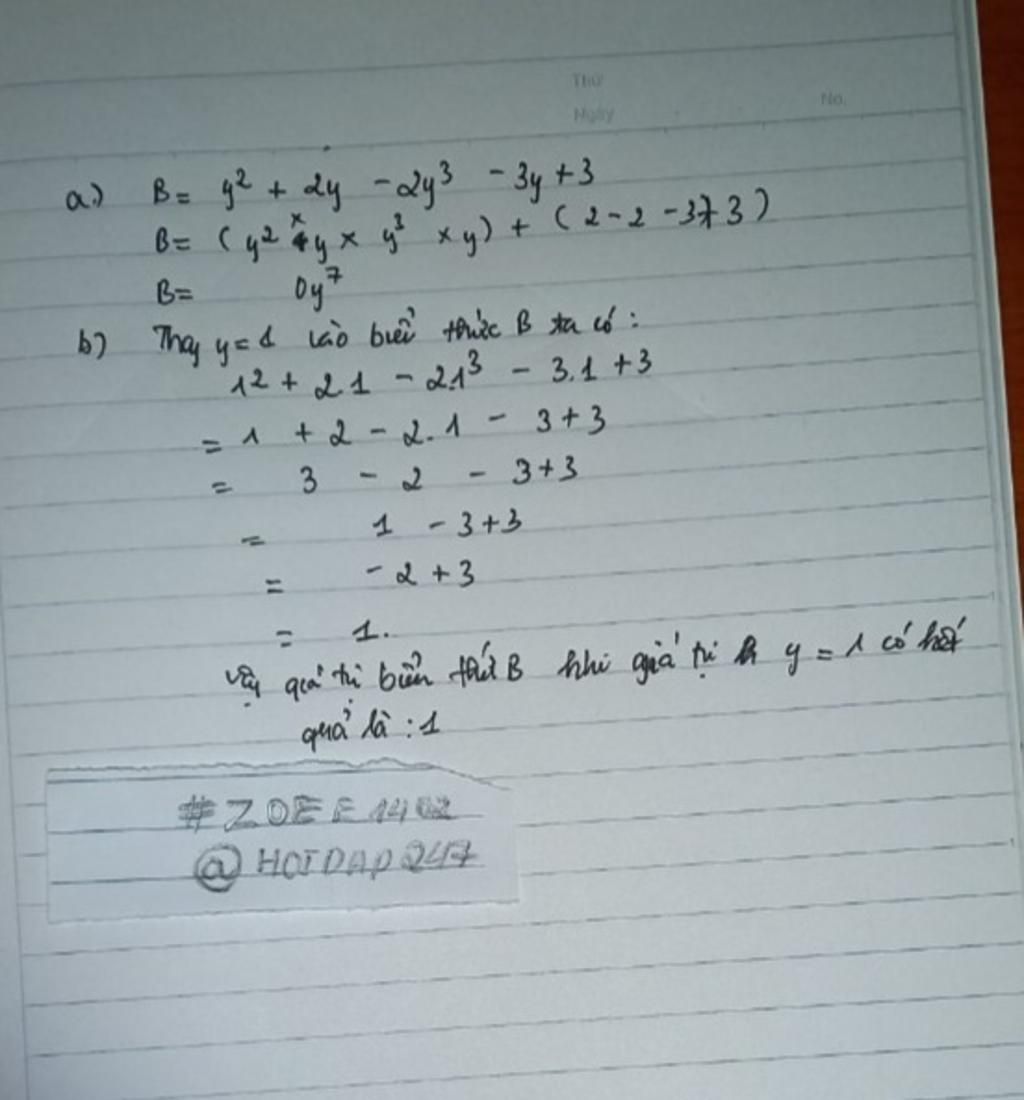 Thứ
Ngày No.
a.) B = y² + 2y - 2y³ - 3y + 3
B = (y² × y × y³ × y) + (2 - 2 - 3 + 3)
B = 0y⁷
b) Thay y = 1 vào biểu thức B ta có:
1² + 2.1 - 2.1³ - 3.1 + 3
= 1 + 2 - 2.1 - 3 + 3
= 3 - 2 - 3 + 3
= 1 - 3 + 3
= -2 + 3
= 1.
Vậy giá trị biểu thức B khi giá trị y = 1 có kết
quả là : 1
#ZOEE1402
@HOIDAP247